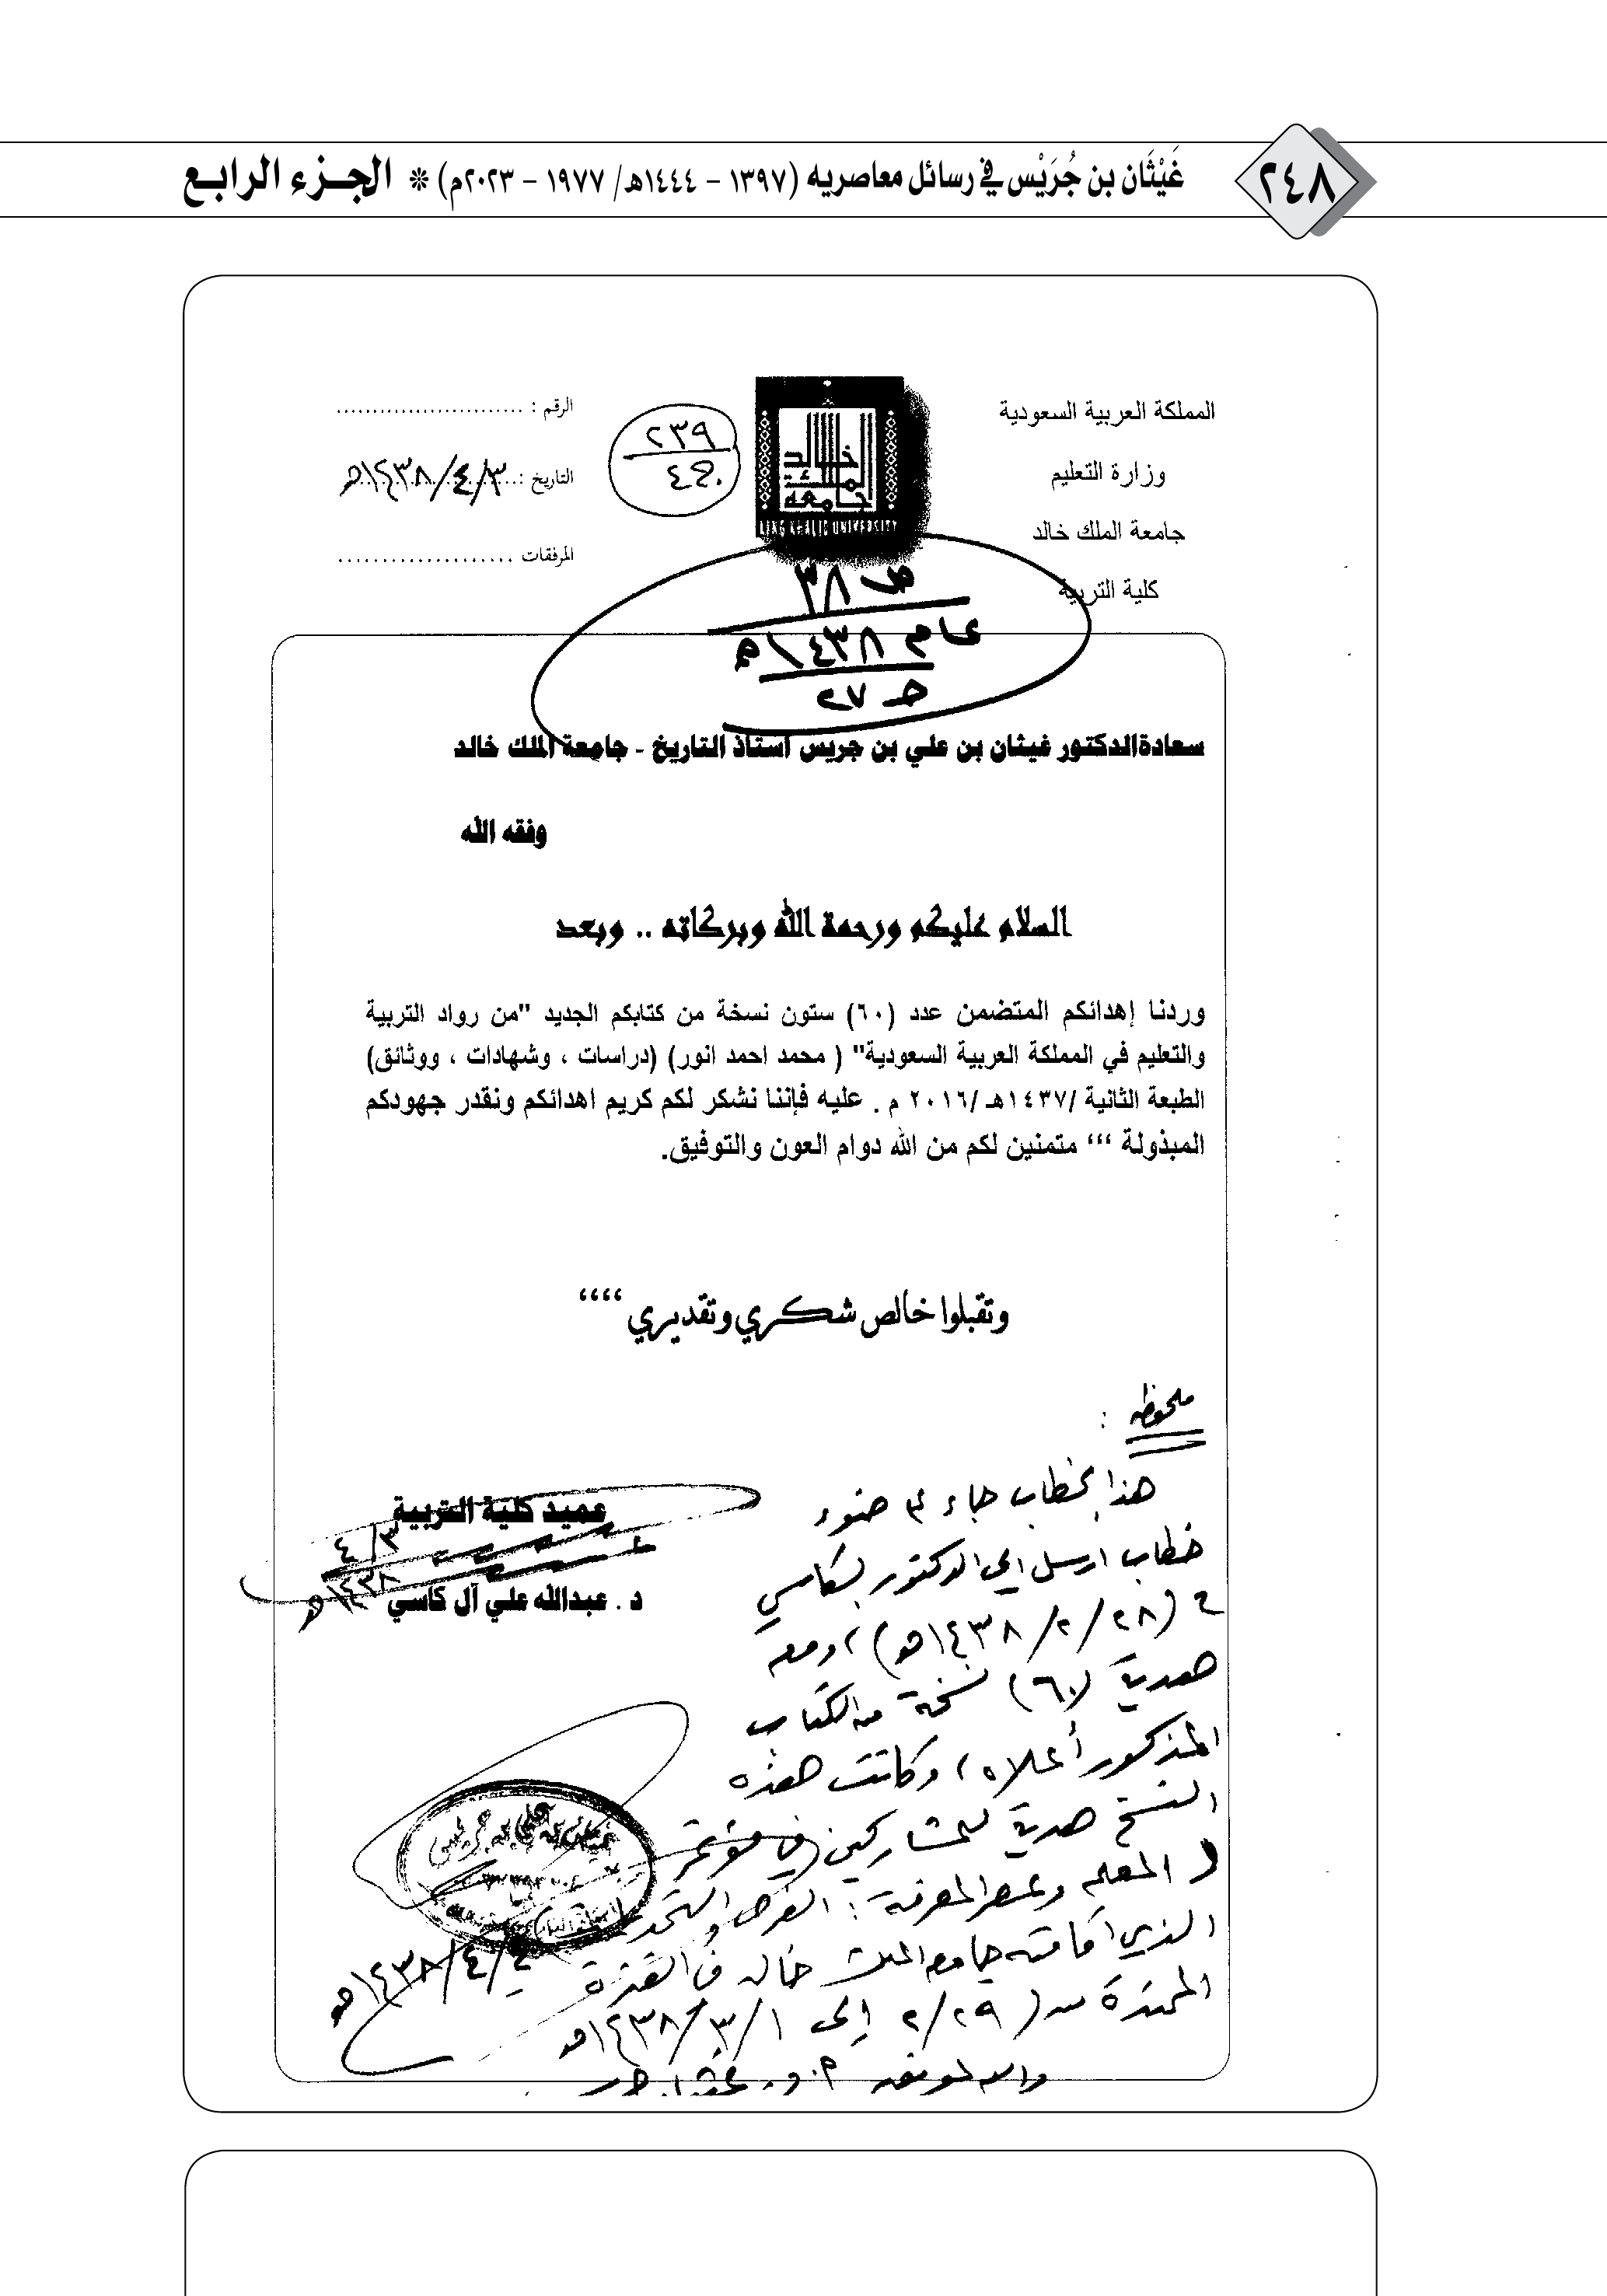 ٢٤٨
غَيْثَان بن جُرَيْس في رسائل معاصريه (١٣٩٧ - ١٤٤٤هـ/ ١٩٧٧ - ٢٠٢٣م) * الجـزء الرابـع
المملكة العربية السعودية
وزارة التعليم
جامعة الملك خالد
كلية التربية
جامعة الملك خالد
KING KHALID UNIVERSITY
٢٣٩
الرقم : ..........................
التاريخ : ١٤٣٨/٤/٣هـ
المرفقات ....................
ص ٣٨
عام ١٤٣٨هـ
جـ ٢٧
سعادة الدكتور غيثان بن علي بن جريس استاذ التاريخ - جامعة الملك خالد
وفقه الله
السلام عليكم ورحمة الله وبركاته .. وبعد
وردنا إهدائكم المتضمن عدد (٦٠) ستون نسخة من كتابكم الجديد "من رواد التربية
والتعليم في المملكة العربية السعودية" ( محمد احمد انور) (دراسات ، وشهادات ، ووثائق)
الطبعة الثانية /١٤٣٧هـ /٢٠١٦ م . عليه فإننا نشكر لكم كريم اهدائكم ونقدر جهودكم
المبذولة ،،، متمنين لكم من الله دوام العون والتوفيق.
وتقبلوا خالص شكري وتقديري ،،،،
عميد كلية التربية
٤/٣
١٤٣٨هـ
د . عبدالله علي آل كاسي
ملحوظه :
هذا الخطاب جاء في ضوء
خطاب ارسل إلى الدكتور الكاسي
في (١٤٣٨/٢/٢٨هـ) ، ومعه
هدية (٦٠) نسخة من الكتاب
المذكور أعلاه ، وكانت هذه
النسخ هدية للمشاركين في مؤتمر
( المعلم وعصر المعرفة : الفرص والتحديات )
الذي اقامته جامعة الملك خالد في الفترة
الممتدة من ( ٢/٢٩ إلى ١٤٣٨/٣/١هـ
والله الموفق
١٤٣٨/٤/٤هـ